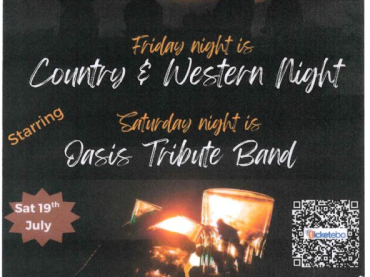 Friday night is
Country & Western Night
Starring
Saturday night is
Oasis Tribute Band
Sat 19th
July
Ticketebo